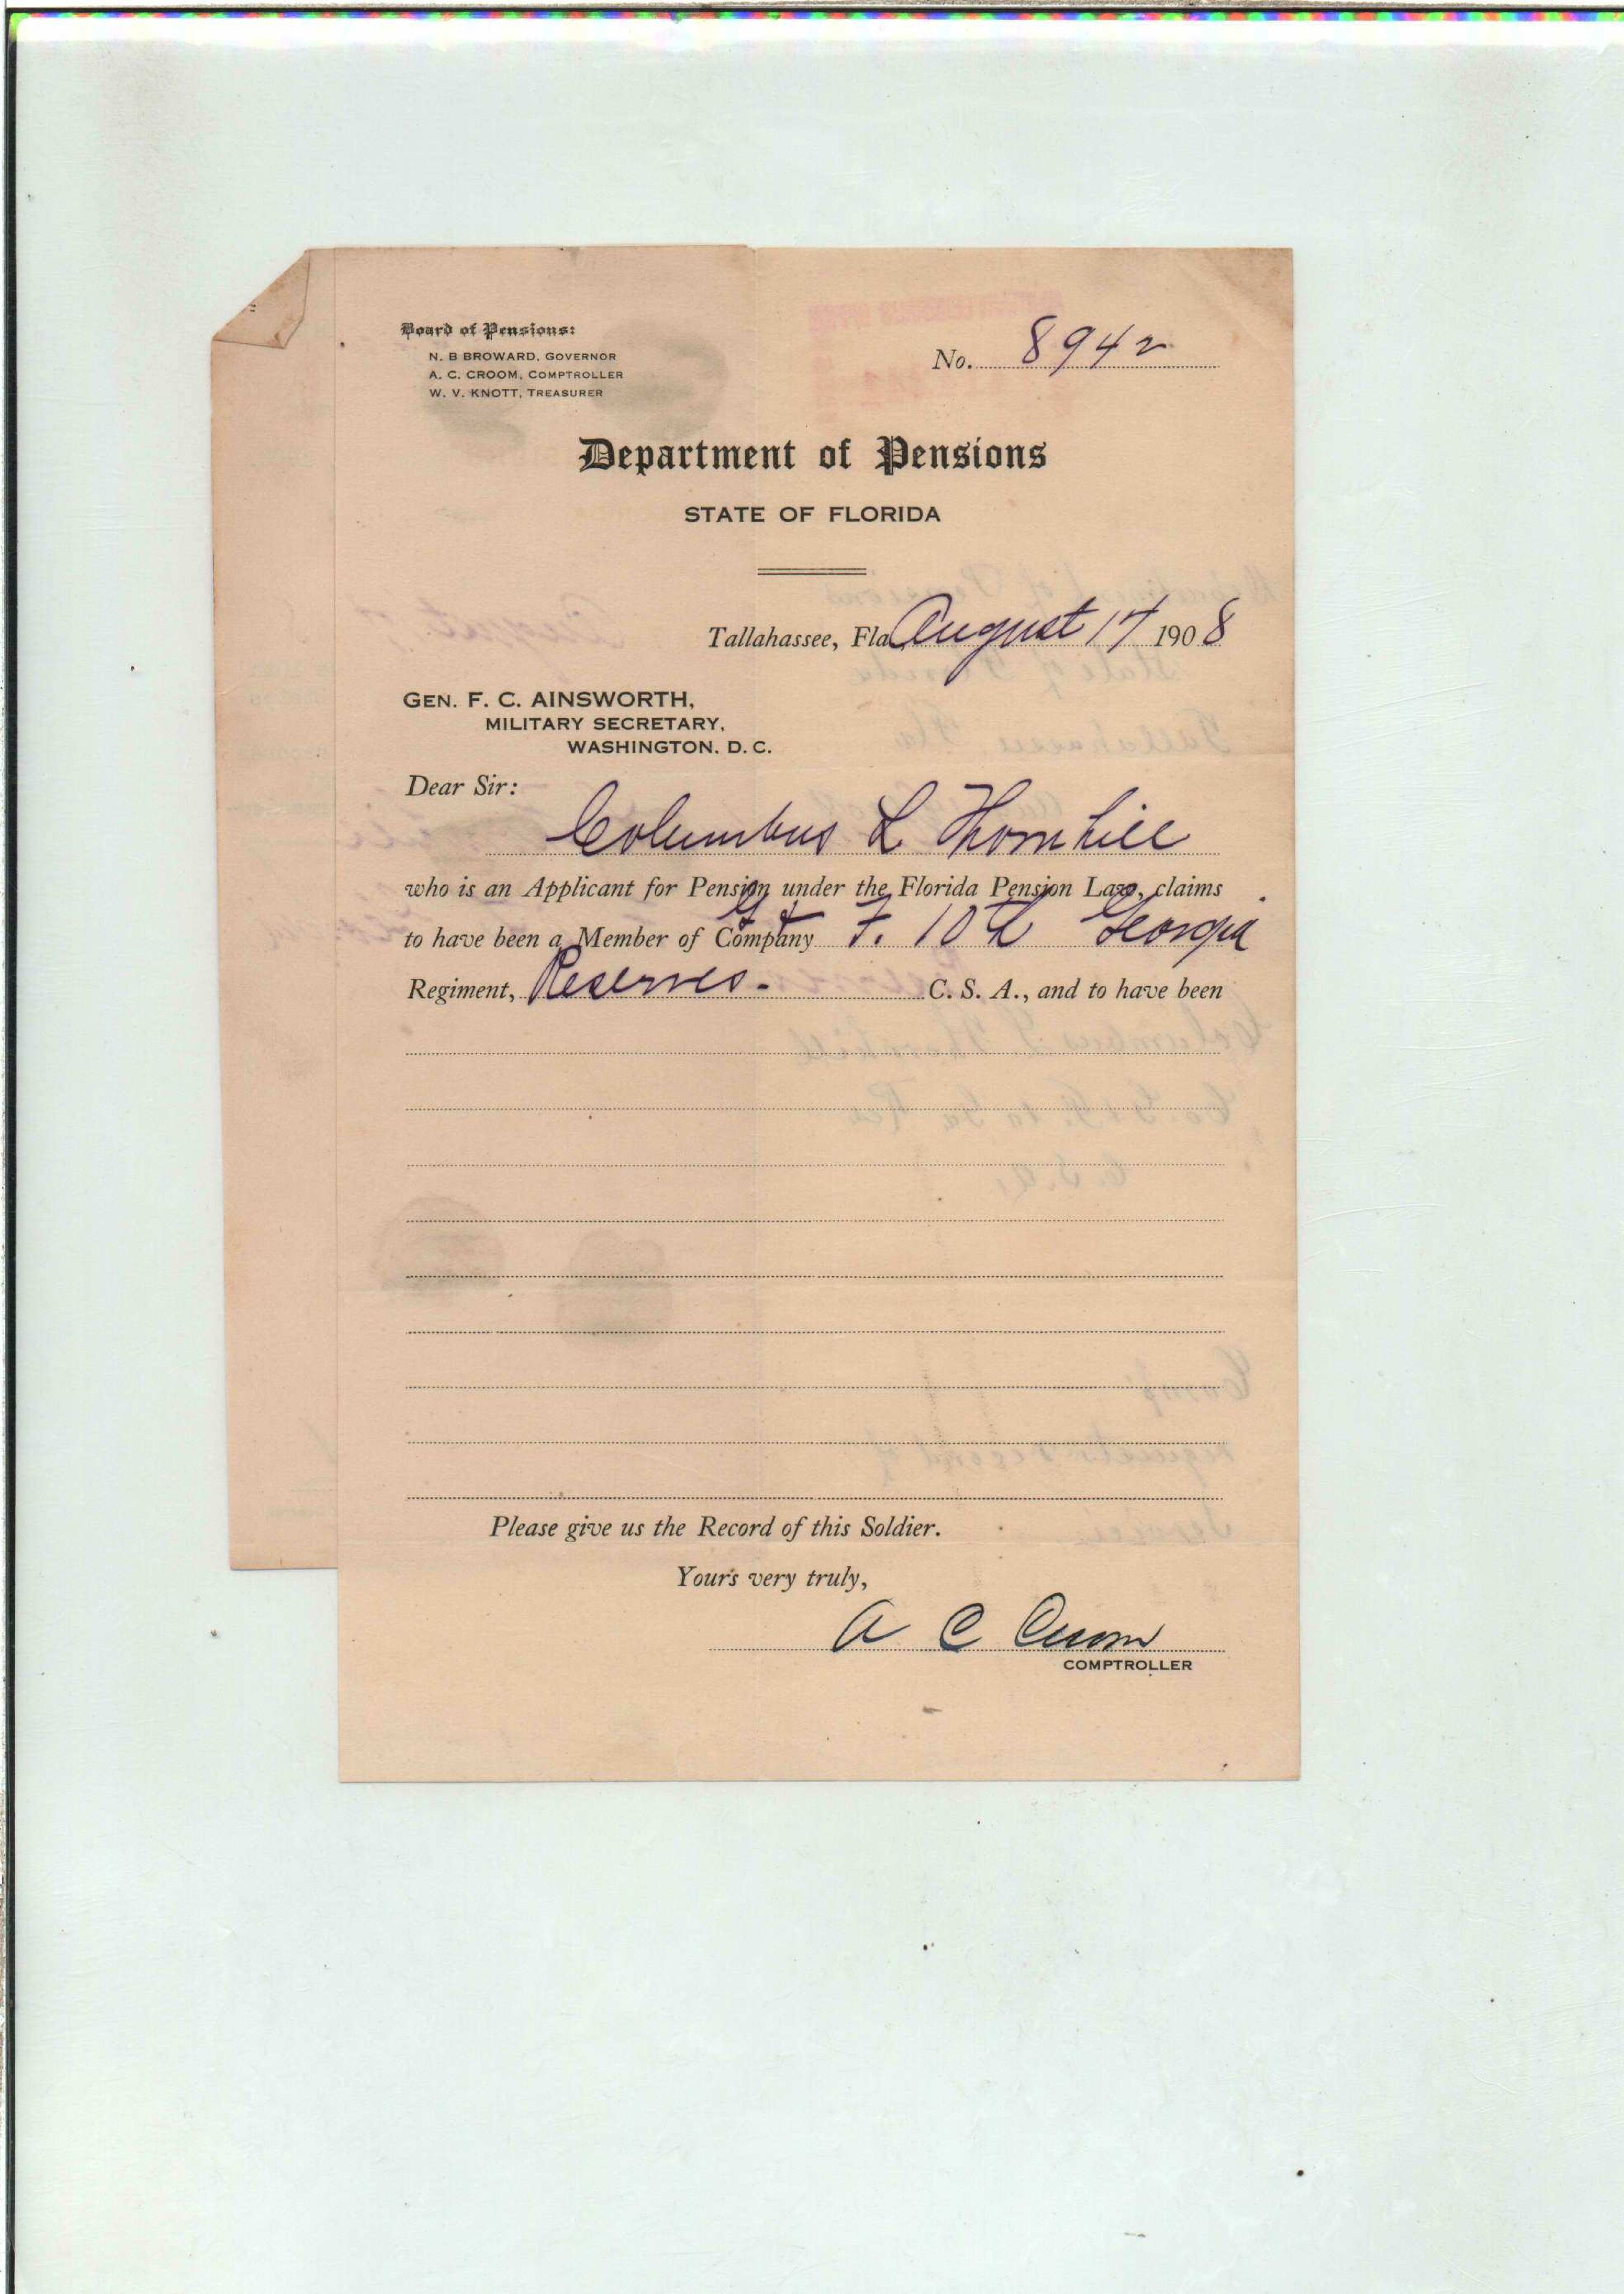 Board of Pensions:
N. B BROWARD, GOVERNOR
A. C. CROOM, COMPTROLLER
W. V. KNOTT, TREASURER
No. 8942
Department of Pensions
STATE OF FLORIDA
Tallahassee, Fla August 17 1908
GEN. F. C. AINSWORTH,
MILITARY SECRETARY,
WASHINGTON, D. C.
Dear Sir:
Columbus L Thornhill
who is an Applicant for Pension under the Florida Pension Law, claims
to have been a Member of Company G + F. 10th Georgia
Regiment, Reserves. C. S. A., and to have been
Please give us the Record of this Soldier.
Yours very truly,
A C Croom
COMPTROLLER